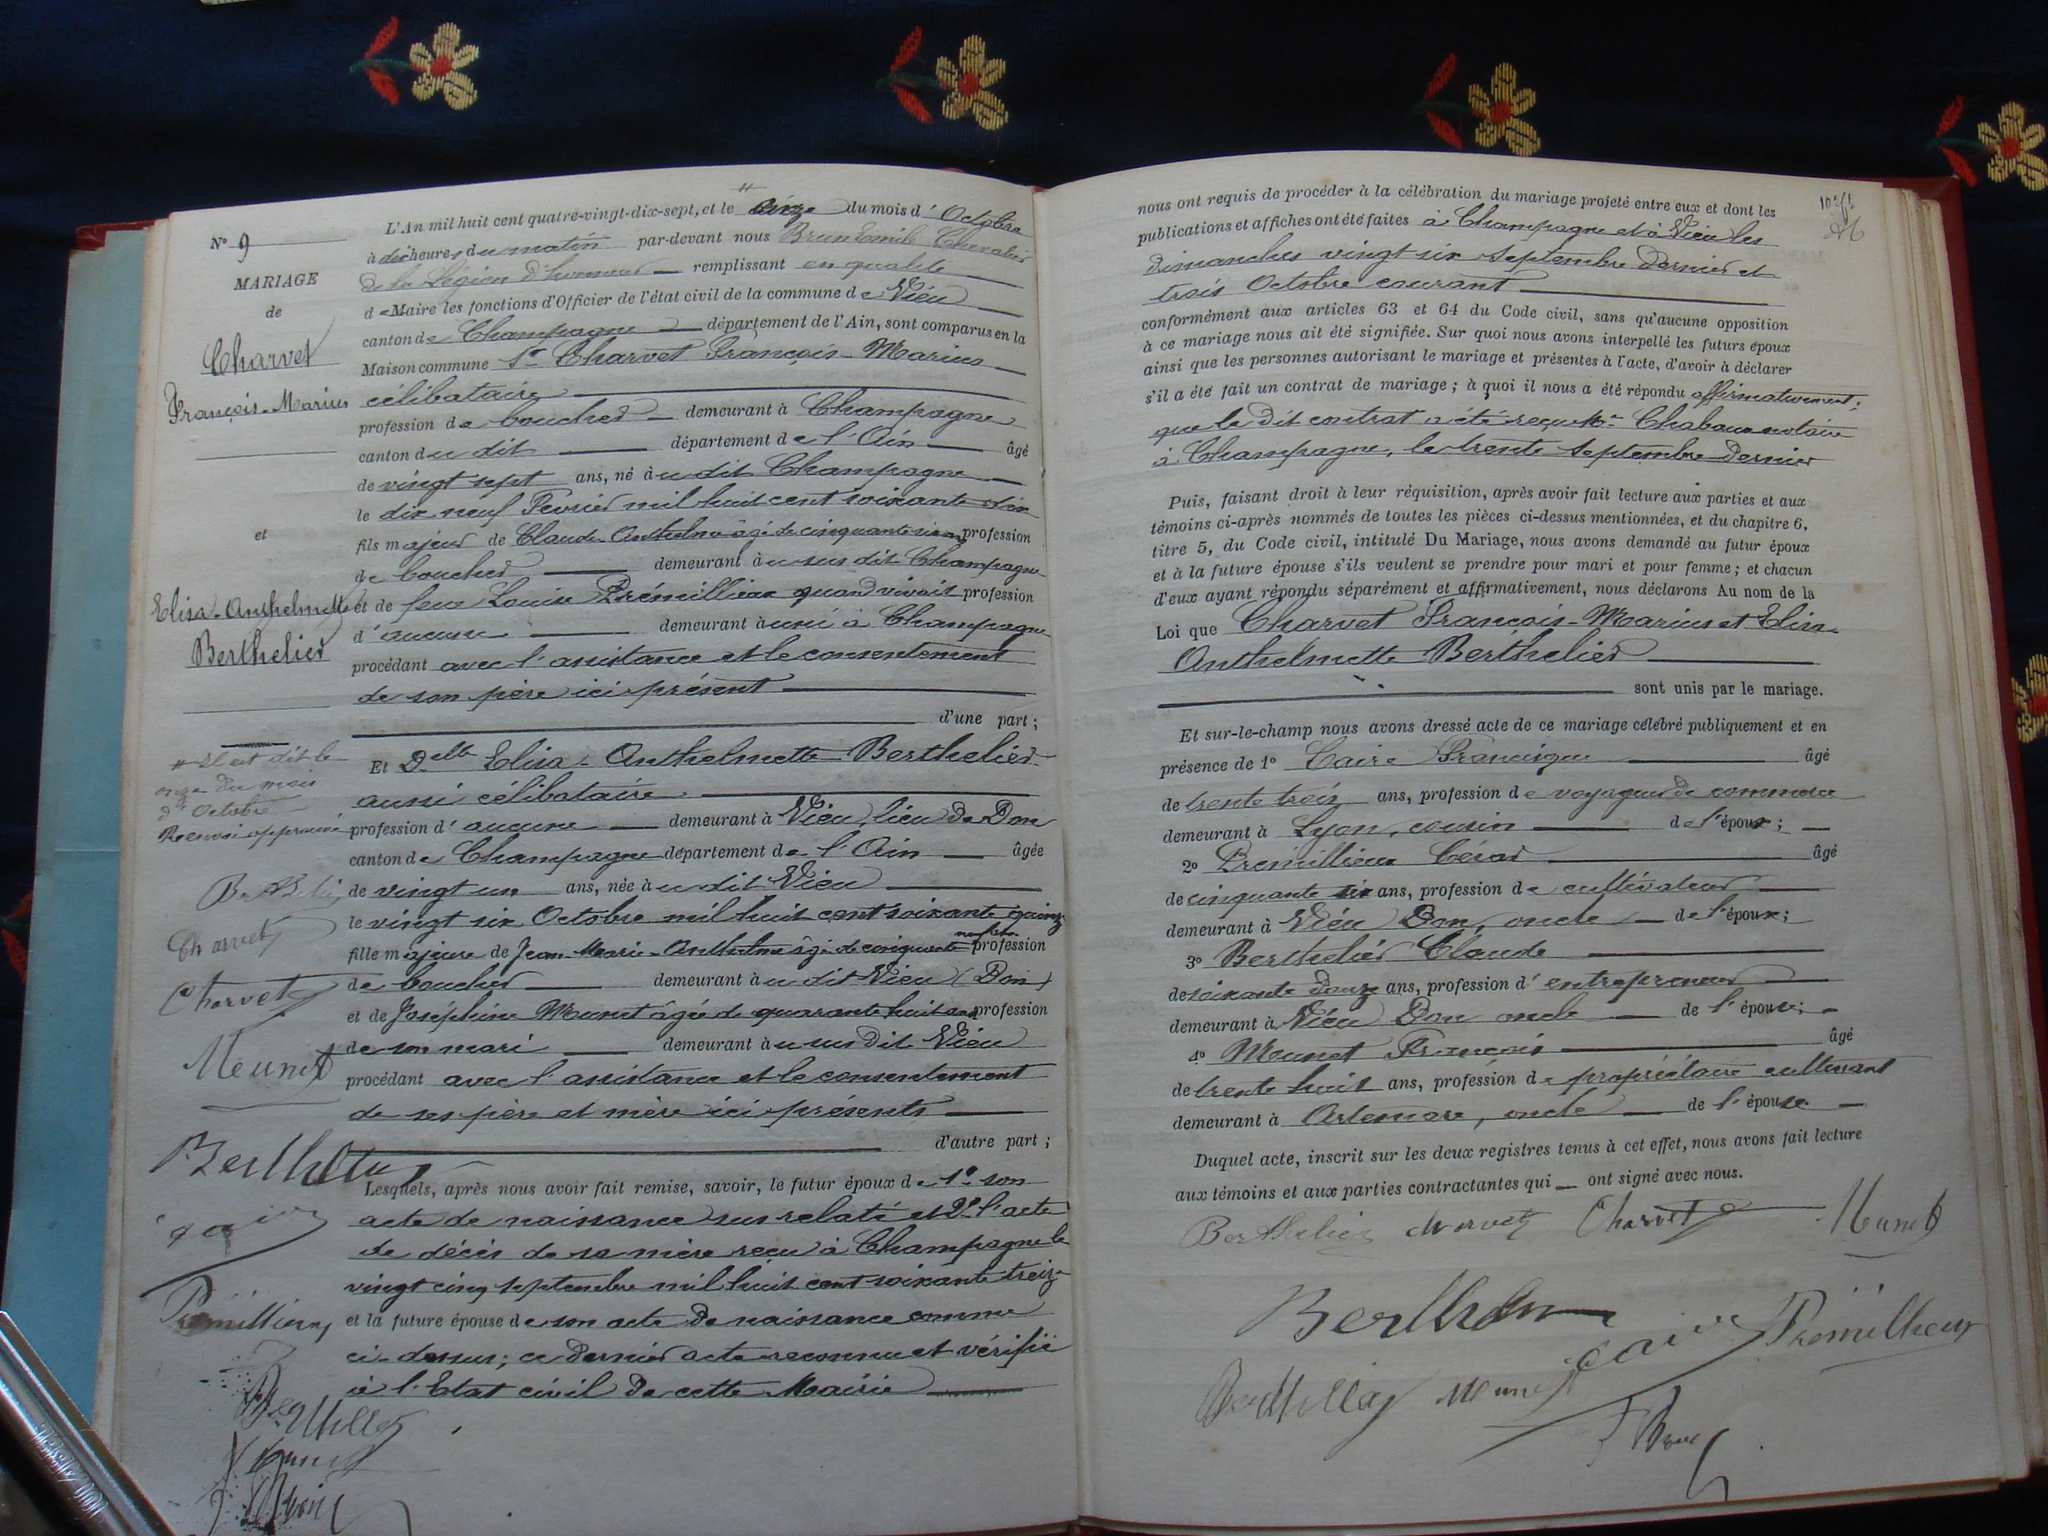 N° 9
MARIAGE
de
Charvet
François-Marius
et
Elisa-Anthelmette
Berthelier
# Il est dit le
onze du mois
d'Octobre
Renvoi approuvé
Charvet
Charvet
Meunet
L'An mil huit cent quatre-vingt-dix-sept, et le # du mois d'Octobre
à dix heures du matin par-devant nous Brun Chevalier
de la Légion d'honneur remplissant en qualité
de Maire les fonctions d'Officier de l'état civil de la commune de Vieu
canton de Champagne département de l'Ain, sont comparus en la
Maison commune Sr Charvet François-Marius
célibataire
profession de boucher demeurant à Champagne
canton du dit département de l'Ain âgé
de vingt sept ans, né à u dit Champagne
le dix neuf Février mil huit cent soixante dix
fils majeur de Claude-Anthelme âgé de cinquante six ans profession
de boucher demeurant à u sus dit Champagne
et de feue Louise Prémillieux quand vivait profession
d'aucune demeurant aussi à Champagne
procédant avec l'assistance et le consentement
de son père ici présent
d'une part ;
Et Delle Elisa-Anthelmette Berthelier
aussi célibataire
profession d'aucune demeurant à Vieu, lieu de Don
canton de Champagne département de l'Ain âgée
de vingt un ans, née à u dit Vieu
le vingt six Octobre mil huit cent soixante quinze
fille majeure de Jean-Marie-Anthelme âgé de cinquante neuf ans profession
de boucher demeurant à u dit Vieu (Don)
et de Joséphine Meunet âgée de quarante huit ans profession
de son mari demeurant à u sus dit Vieu
procédant avec l'assistance et le consentement
de ses père et mère ici présents
d'autre part ;
Lesquels, après nous avoir fait remise, savoir, le futur époux de 1° son
acte de naissance sus relaté et 2° l'acte
de décès de sa mère reçu à Champagne le
vingt cinq septembre mil huit cent soixante treize
et la future épouse de son acte de naissance comme
ci-dessus; ce dernier acte reconnu et vérifié
à l'Etat civil de cette Mairie
nous ont requis de procéder à la célébration du mariage projeté entre eux et dont les
publications et affiches ont été faites à Champagne et à Vieu les
dimanches vingt six septembre dernier et
trois Octobre courant
conformément aux articles 63 et 64 du Code civil, sans qu'aucune opposition
à ce mariage nous ait été signifiée. Sur quoi nous avons interpellé les futurs époux
ainsi que les personnes autorisant le mariage et présentes à l'acte, d'avoir à déclarer
s'il a été fait un contrat de mariage ; à quoi il nous a été répondu affirmativement;
que le dit contrat a été reçu Me notaire
à Champagne, le trente septembre dernier
Puis, faisant droit à leur réquisition, après avoir fait lecture aux parties et aux
témoins ci-après nommés de toutes les pièces ci-dessus mentionnées, et du chapitre 6,
titre 5, du Code civil, intitulé Du Mariage, nous avons demandé au futur époux
et à la future épouse s'ils veulent se prendre pour mari et pour femme ; et chacun
d'eux ayant répondu séparément et affirmativement, nous déclarons Au nom de la
Loi que Charvet François-Marius et Elisa
Anthelmette Berthelier
sont unis par le mariage.
Et sur-le-champ nous avons dressé acte de ce mariage célébré publiquement et en
présence de 1° Caire Francisque âgé
de trente trois ans, profession de voyageur de commerce
demeurant à Lyon, cousin de l'époux ;
2° Premillieux César âgé
de cinquante six ans, profession de cultivateur
demeurant à Vieu Don, oncle de l'époux ;
3° Berthelier Claude
de soixante douze ans, profession d'entrepreneur
demeurant à Vieu Don oncle de l'épouse ;
4° Meunet François âgé
de trente huit ans, profession de propriétaire cultivant
demeurant à Artemare, oncle de l'épouse
Duquel acte, inscrit sur les deux registres tenus à cet effet, nous avons fait lecture
aux témoins et aux parties contractantes qui ont signé avec nous.
Berthelier Charvet Charvet Meunet
Caire Prémillieux
Meunet